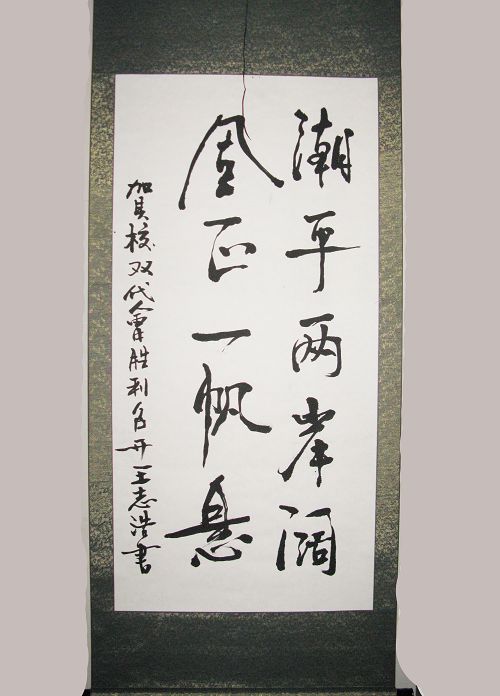 潮平两岸阔
风正一帆悬
加其校双代会胜利召开王志浩书